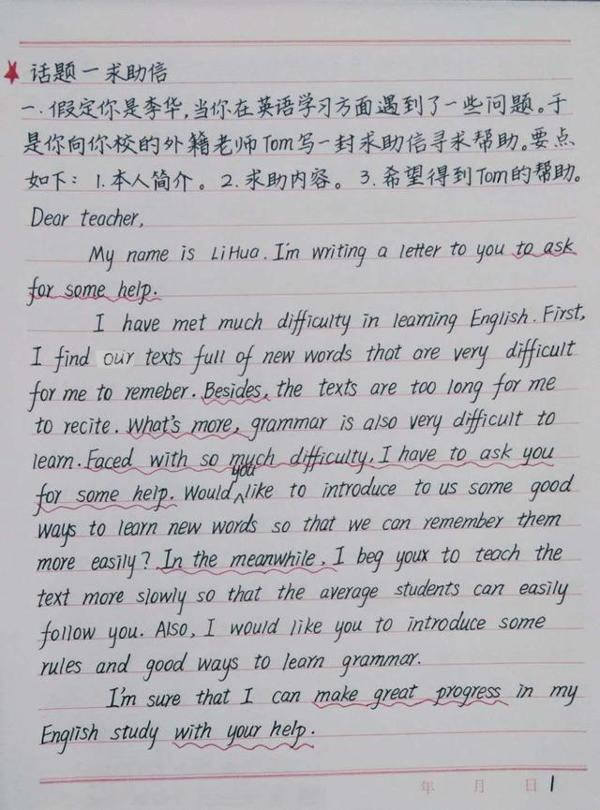 ★话题一求助信
一.假定你是李华,当你在英语学习方面遇到了一些问题。于
是你向你校的外籍老师Tom写一封求助信寻求帮助。要点
如下: 1.本人简介。2.求助内容。3.希望得到Tom的帮助。
Dear teacher,
My name is LiHua. I'm writing a letter to you to ask
for some help.
I have met much difficulty in learning English. First,
I find our texts full of new words that are very difficult
for me to remeber. Besides, the texts are too long for me
to recite. What's more, grammar is also very difficult to
learn. Faced with so much difficulty, I have to ask you
for some help. Would you like to introduce to us some good
ways to learn new words so that we can remember them
more easily? In the meanwhile, I beg youx to teach the
text more slowly so that the average students can easily
follow you. Also, I would like you to introduce some
rules and good ways to learn grammar.
I'm sure that I can make great progress in my
English study with your help.
年 月 日 1